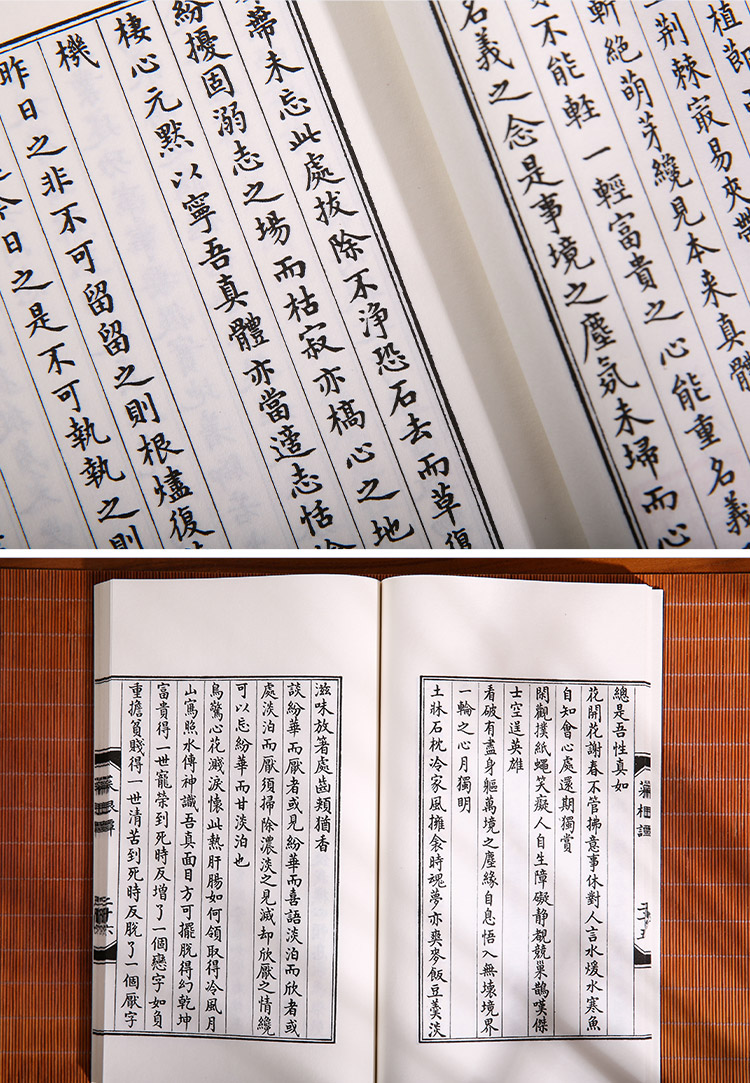 植節
荊棘㝡易夾帶
斬絕萌芽纔見本來真體
不能輕一輕富貴之心能重名義
名義之念是事境之塵氛未埽而心
蒂未忘此處拔除不淨恐石去而草復
紛擾固溺志之場而枯寂亦槁心之地
棲心元默以寧吾真體亦當適志恬
機
昨日之非不可留留之則根燼復
今日之是不可執執之則
總是吾性真如
花開花謝春不管拂意事休對人言水煖水寒魚
自知會心處還期獨賞
閑觀撲紙蠅笑癡人自生障礙靜覩競巢鵲嘆傑
士空逞英雄
看破有盡身軀萬境之塵緣自息悟入無壞境界
一輪之心月獨明
土牀石枕冷家風擁衾時魂夢亦爽麥飯豆羹淡
滋味放箸處齒頰猶香
談紛華而厭者或見紛華而喜語淡泊而欣者或
處淡泊而厭須掃除濃淡之見滅却欣厭之情纔
可以忘紛華而甘淡泊也
鳥驚心花濺淚懷此熱肝腸如何領取得冷風月
山寫照水傳神識吾真面目方可擺脫得幻乾坤
富貴得一世寵榮到死時反增了一個戀字如負
重擔貧賤得一世清苦到死時反脫了一個厭字